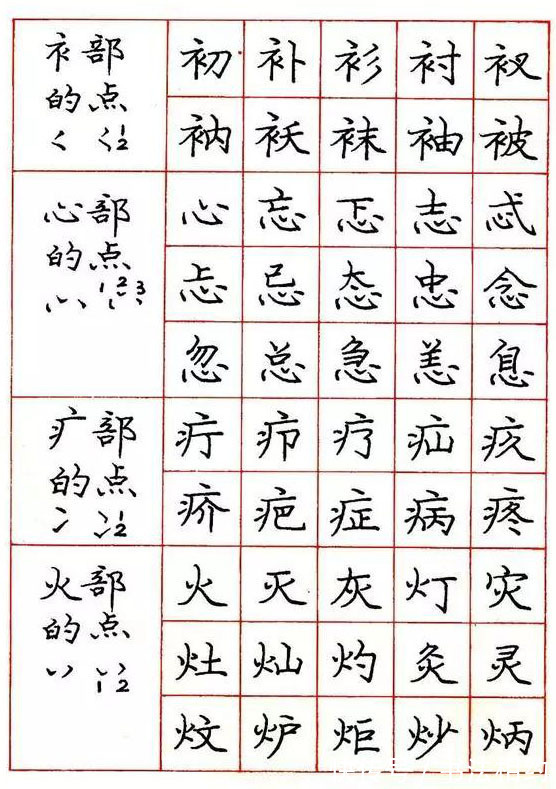 衤部
的点
1 2
初 补 衫 衬 衩
衲 袄 袜 袖 被
心部
的点
1 2 3
心 忘 忑 志 忒
忐 忌 态 忠 念
忽 总 急 恙 息
疒部
的点
1 2
疔 疖 疗 疝
疥 疤 症 病 疼
火部
的点
1 2
火 灭 灰 灯 灾
灶 灿 灼 灸 灵
炆 炉 炬 炒 炳